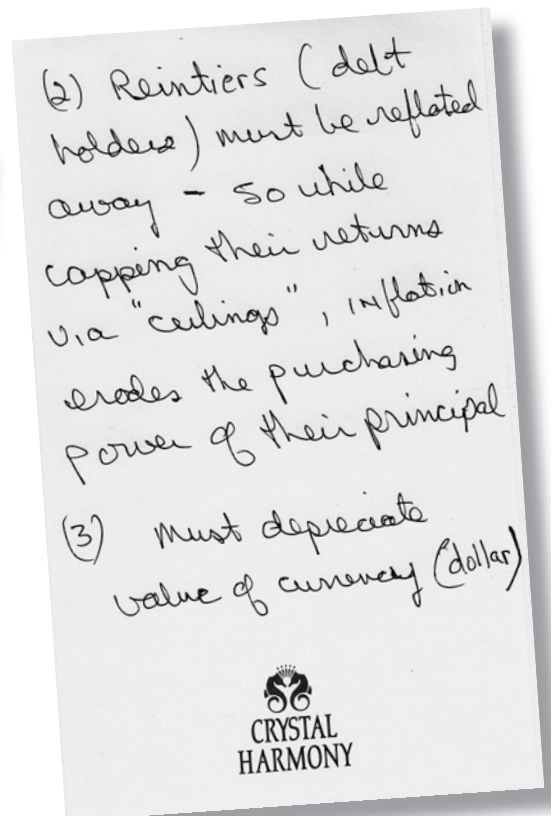 (2) Reintiers (debt
holders) must be reflated
away - so while
capping their returns
via "ceilings", inflation
erodes the purchasing
power of their principal
(3) Must depreciate
value of currency (dollar)
CRYSTAL
HARMONY